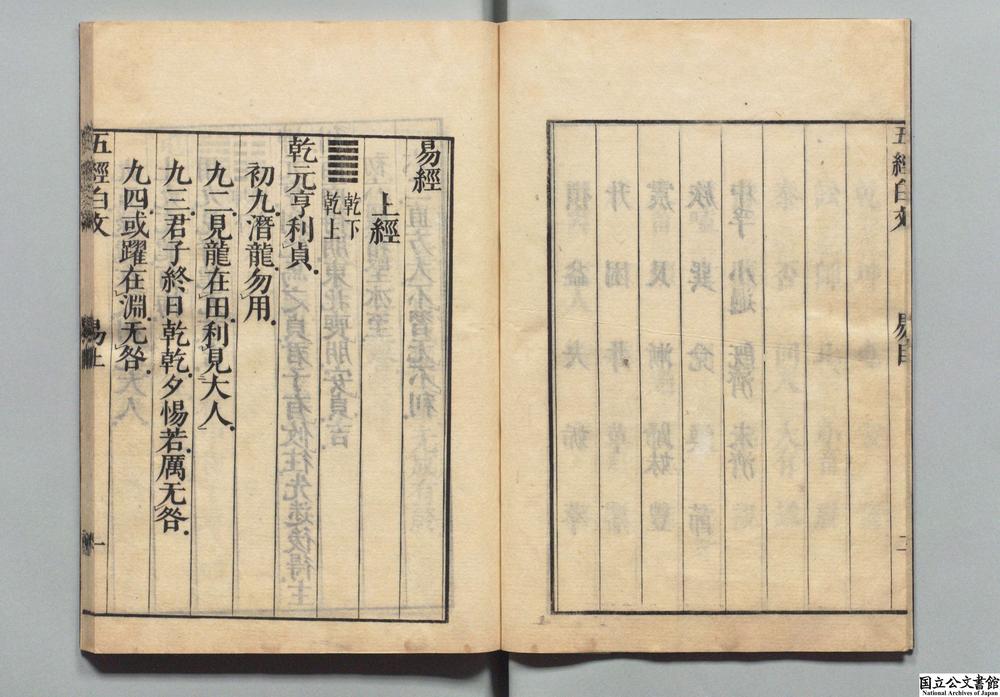 五經白文
易目
二
易經
上經
乾下
乾上
乾元亨利貞.
初九.潛龍.勿用.
九二.見龍在田.利見大人.
九三.君子終日乾乾.夕惕若.厲无咎.
九四.或躍在淵.无咎.
五經白文
易上
一
国立公文書館
National Archives of Japan